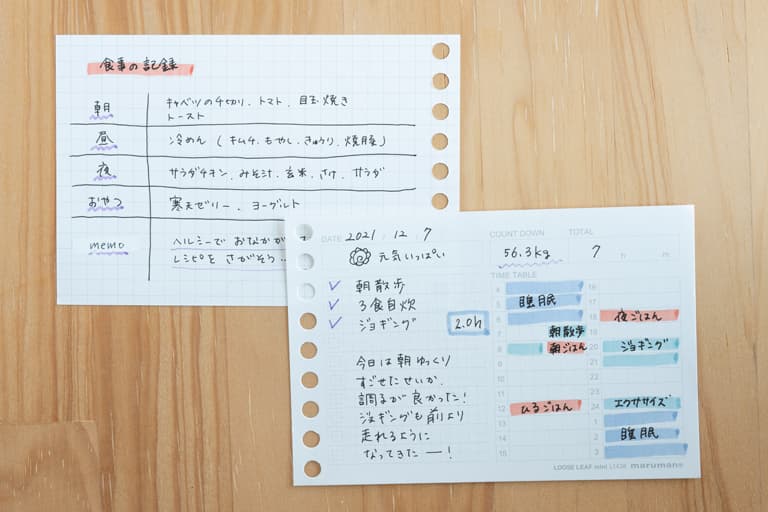 食事の記録
朝 キャベツの千切り、トマト、目玉焼き
トースト
昼 冷めん（キムチ、もやし、きゅうり、焼豚）
夜 サラダチキン、みそ汁、玄米、さけ、サラダ
おやつ 寒天ゼリー、ヨーグルト
memo ヘルシーで おなかが
レシピを さがそう…
DATE 2021 / 12 / 7
元気いっぱい
COUNT DOWN TOTAL
56.3kg 7 h m
✓ 朝散歩
✓ 3食自炊
✓ ジョギング 2.0h
今日は朝ゆっくり
すごせたせいか、
調子が良かった!
ジョギングも前より
走れるように
なってきたー!
TIME TABLE
4 16
5 睡眠 17
6 18 夜ごはん
7 朝散歩 19
8 朝ごはん 20 ジョギング
9 21
10 22
11 23
12 ひるごはん 24 エクササイズ
13 1
14 2 睡眠
15 3
LOOSE LEAF mini L1436 maruman